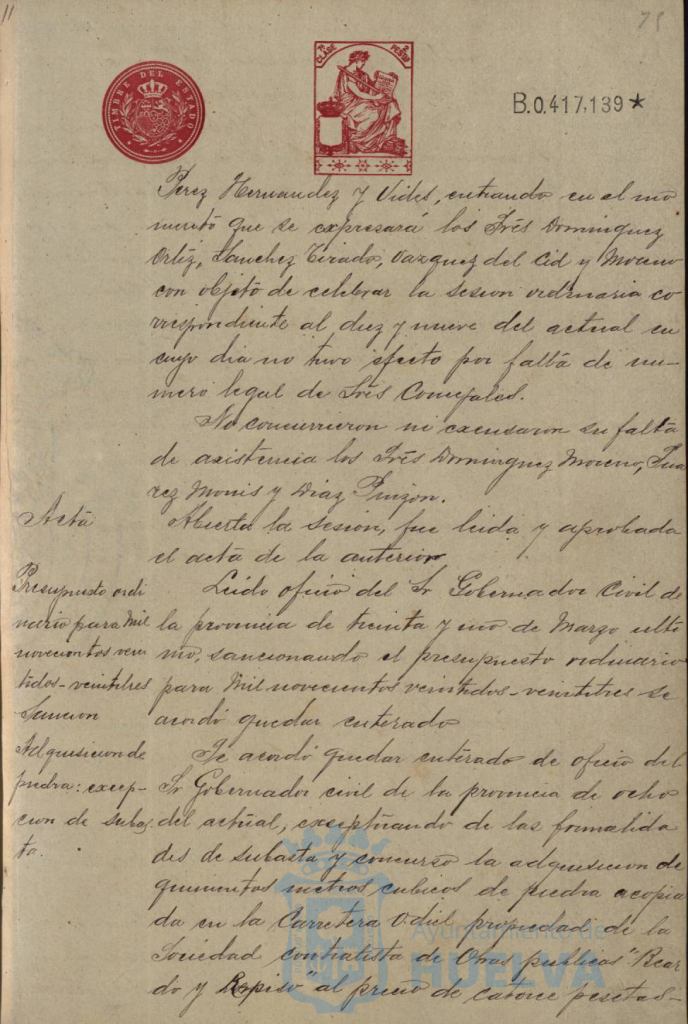 11
75
TIMBRE DEL ESTADO
7ª CLASE
2 PESETAS
B.0.417,139★
Perez Hernandez y Vides, entrando en el mo
mento que se expresará los Srés Dominguez
Ortiz, Sanchez Tirado, Vazquez del Cid y Moreno
con objeto de celebrar la sesion ordinaria co
rrespondiente al diez y nueve del actual en
cuyo dia no tuvo efecto por falta de nu-
mero legal de Srés Concejales.
No concurrieron ni excusaron su falta
de asistencia los Srés Dominguez Moreno, Sua
rez Monis y Diaz Pinzon.
Acta
Abierta la sesion, fue leida y aprobada
el acta de la anterior
Presupuesto ordi
nario para Mil
novecientos vein
tidos-veintitres
Sancion
Leido oficio del Sr Gobernador Civil de
la provincia de treinta y uno de Marzo ulti
mo, sancionando el presupuesto ordinario
para Mil novecientos veintidos-veintitres-se
acordó quedar enterado
Adquisicion de
piedra: excep-
cion de subas
ta.
Se acordó quedar enterado de oficio del
Sr Gobernador civil de la provincia de ocho
del actual, exceptuando de las formalida
des de subasta y concurso la adquisicion de
quinientos metros cubicos de piedra acopia
da en la Carretera Odiel propiedad de la
Sociedad contratista de Obras publicas "Bear
do y Repiso" al precio de catorce pesetas-
Ayuntamiento de
HUELVA